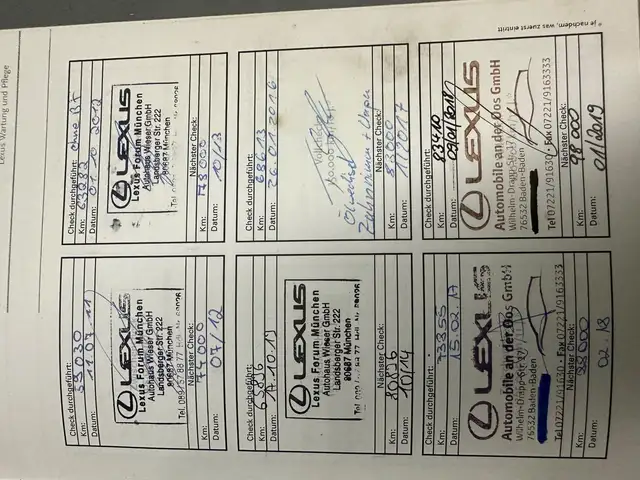 Lexus Wartung und Pflege
* je nachdem, was zuerst eintritt
Check durchgeführt:
Km: 59030
Datum: 11.07.11
LEXUS
Lexus Forum München
Autohaus Wieser GmbH
Landsberger Str. 222
80687 München
Nächster Check:
Km: 74000
Datum: 07/12
Check durchgeführt: ohne BF
Km:
Datum: 10 2012
LEXUS
Lexus Forum München
Autohaus Wieser GmbH
Landsberger Str. 222
80687 München
Nächster Check:
Km: 78000
Datum: 10/13
Check durchgeführt:
Km: 65836
Datum: 17.10.13
LEXUS
Lexus Forum München
Autohaus Wieser GmbH
Landsberger Str. 222
80687 München
Nächster Check:
Km: 80836
Datum: 10/14
Check durchgeführt:
Km: 68613
Datum: 26.01.2016
Ölwechsel
Zahnriemen +
Nächster Check:
Km:
Datum: 2017
Check durchgeführt:
Km: 73355
Datum: 15.02.17
LEXUS
Automobile an der Oos GmbH
Wilhelm-Drapp-Str.
76532 Baden-Baden
Tel 07221/91630 • Fax 07221/9163333
Nächster Check:
Km: 88000
Datum: 02.18
Check durchgeführt:
Km: 83410
Datum: 09/01/2018
LEXUS
Automobile an der Oos GmbH
Wilhelm-Drapp-Str.
76532 Baden-Baden
Tel 07221/91630 • Fax 07221/9163333
Nächster Check:
Km: 98 000
Datum: 01/2019